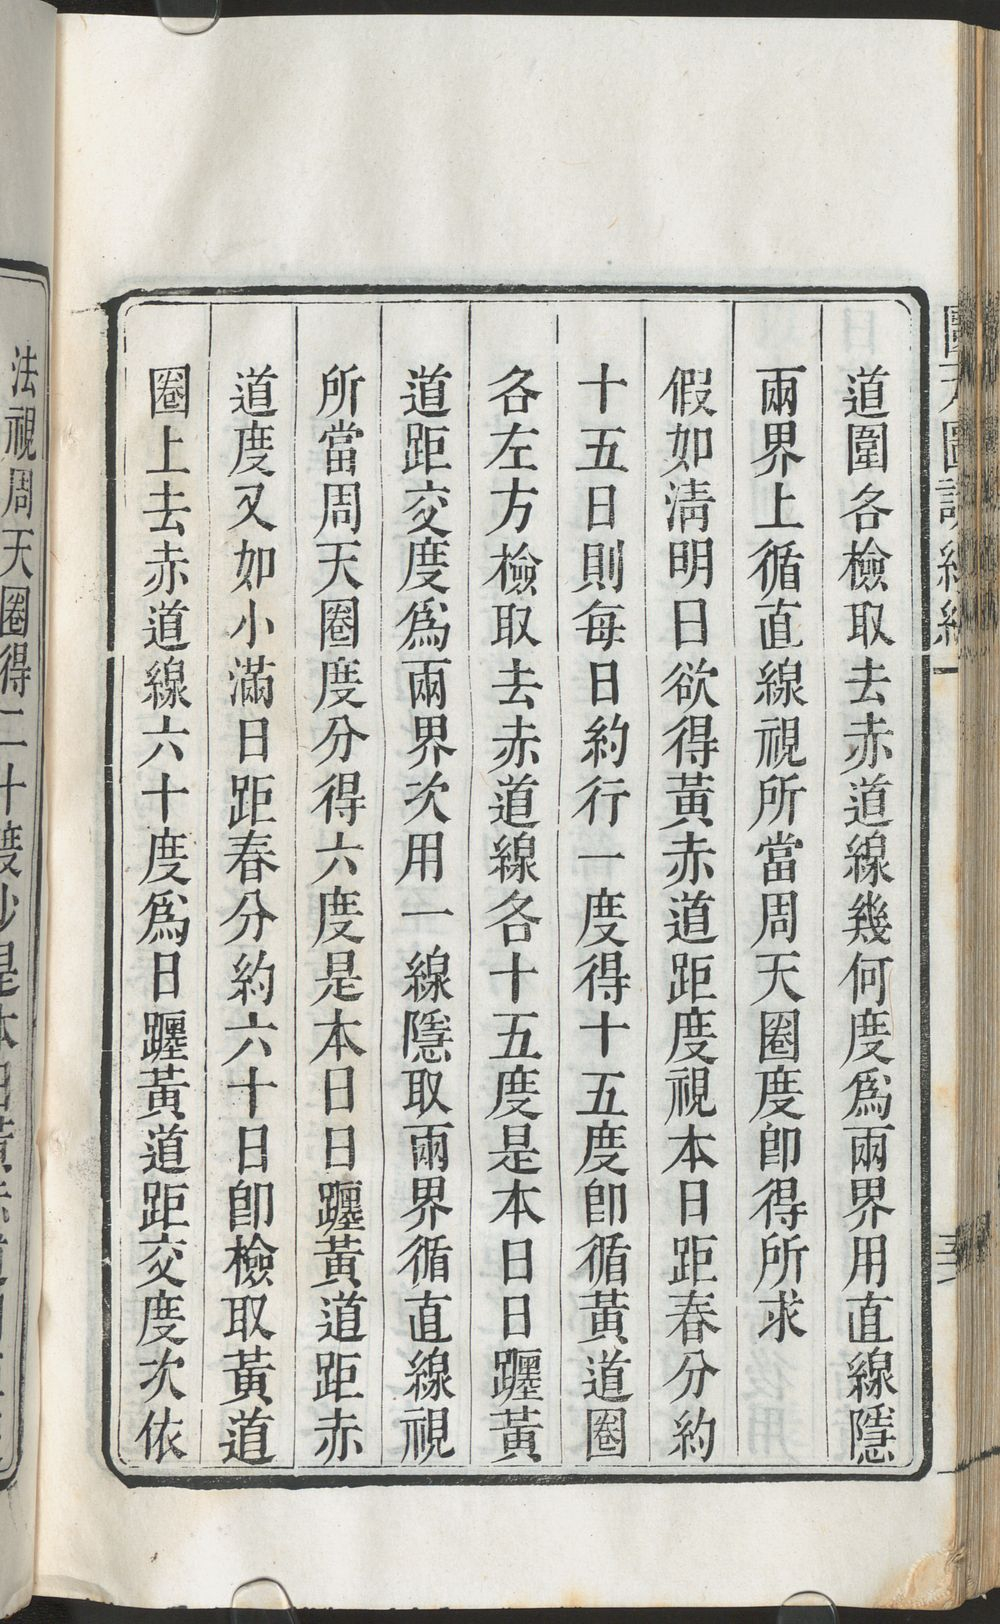 道圍各檢取去赤道線幾何度爲兩界用直線隱
兩界上循直線視所當周天圈度卽得所求
假如淸明日欲得黃赤道距度視本日距春分約
十五日則每日約行一度得十五度卽循黃道圈
各左方檢取去赤道線各十五度是本日日躔黃
道距交度爲兩界次用一線隱取兩界循直線視
所當周天圈度分得六度是本日日躔黃道距赤
道度又如小滿日距春分約六十日卽檢取黃道
圈上去赤道線六十度爲日躔黃道距交度次依
法視周天圈得二十度少是本日黃赤道